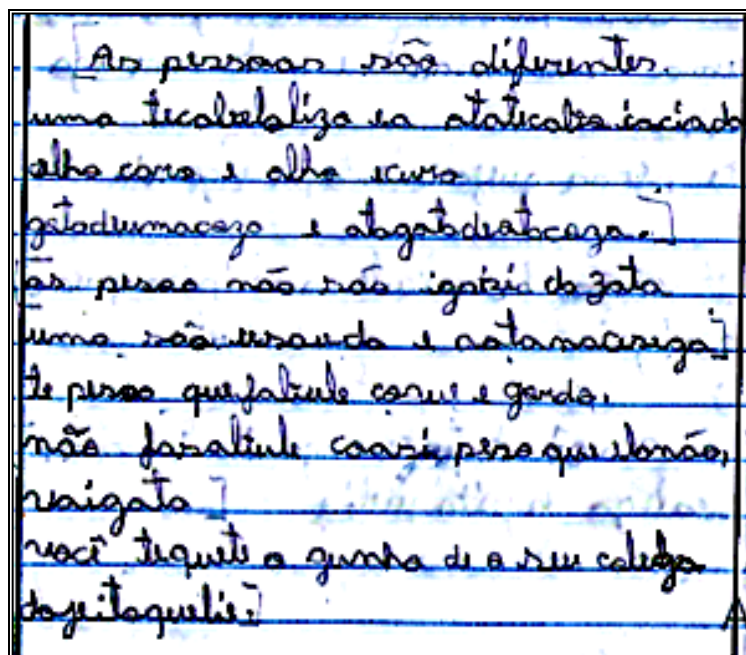 [As pessoas são diferentes.
uma tecabelaliza ea otatecabeloicaciado
olho coro e olho icuro
gatodeumacazo e otogatodeotocaza.]
as pesoa não são igoisi do zota
uma são e a otamocisega]
te pesoa que falicule core e gordo.
não fasalicule coasi peso que elanão,
vaigata]
você tequete a junha de o seu colega
dojeitoqueelie.]